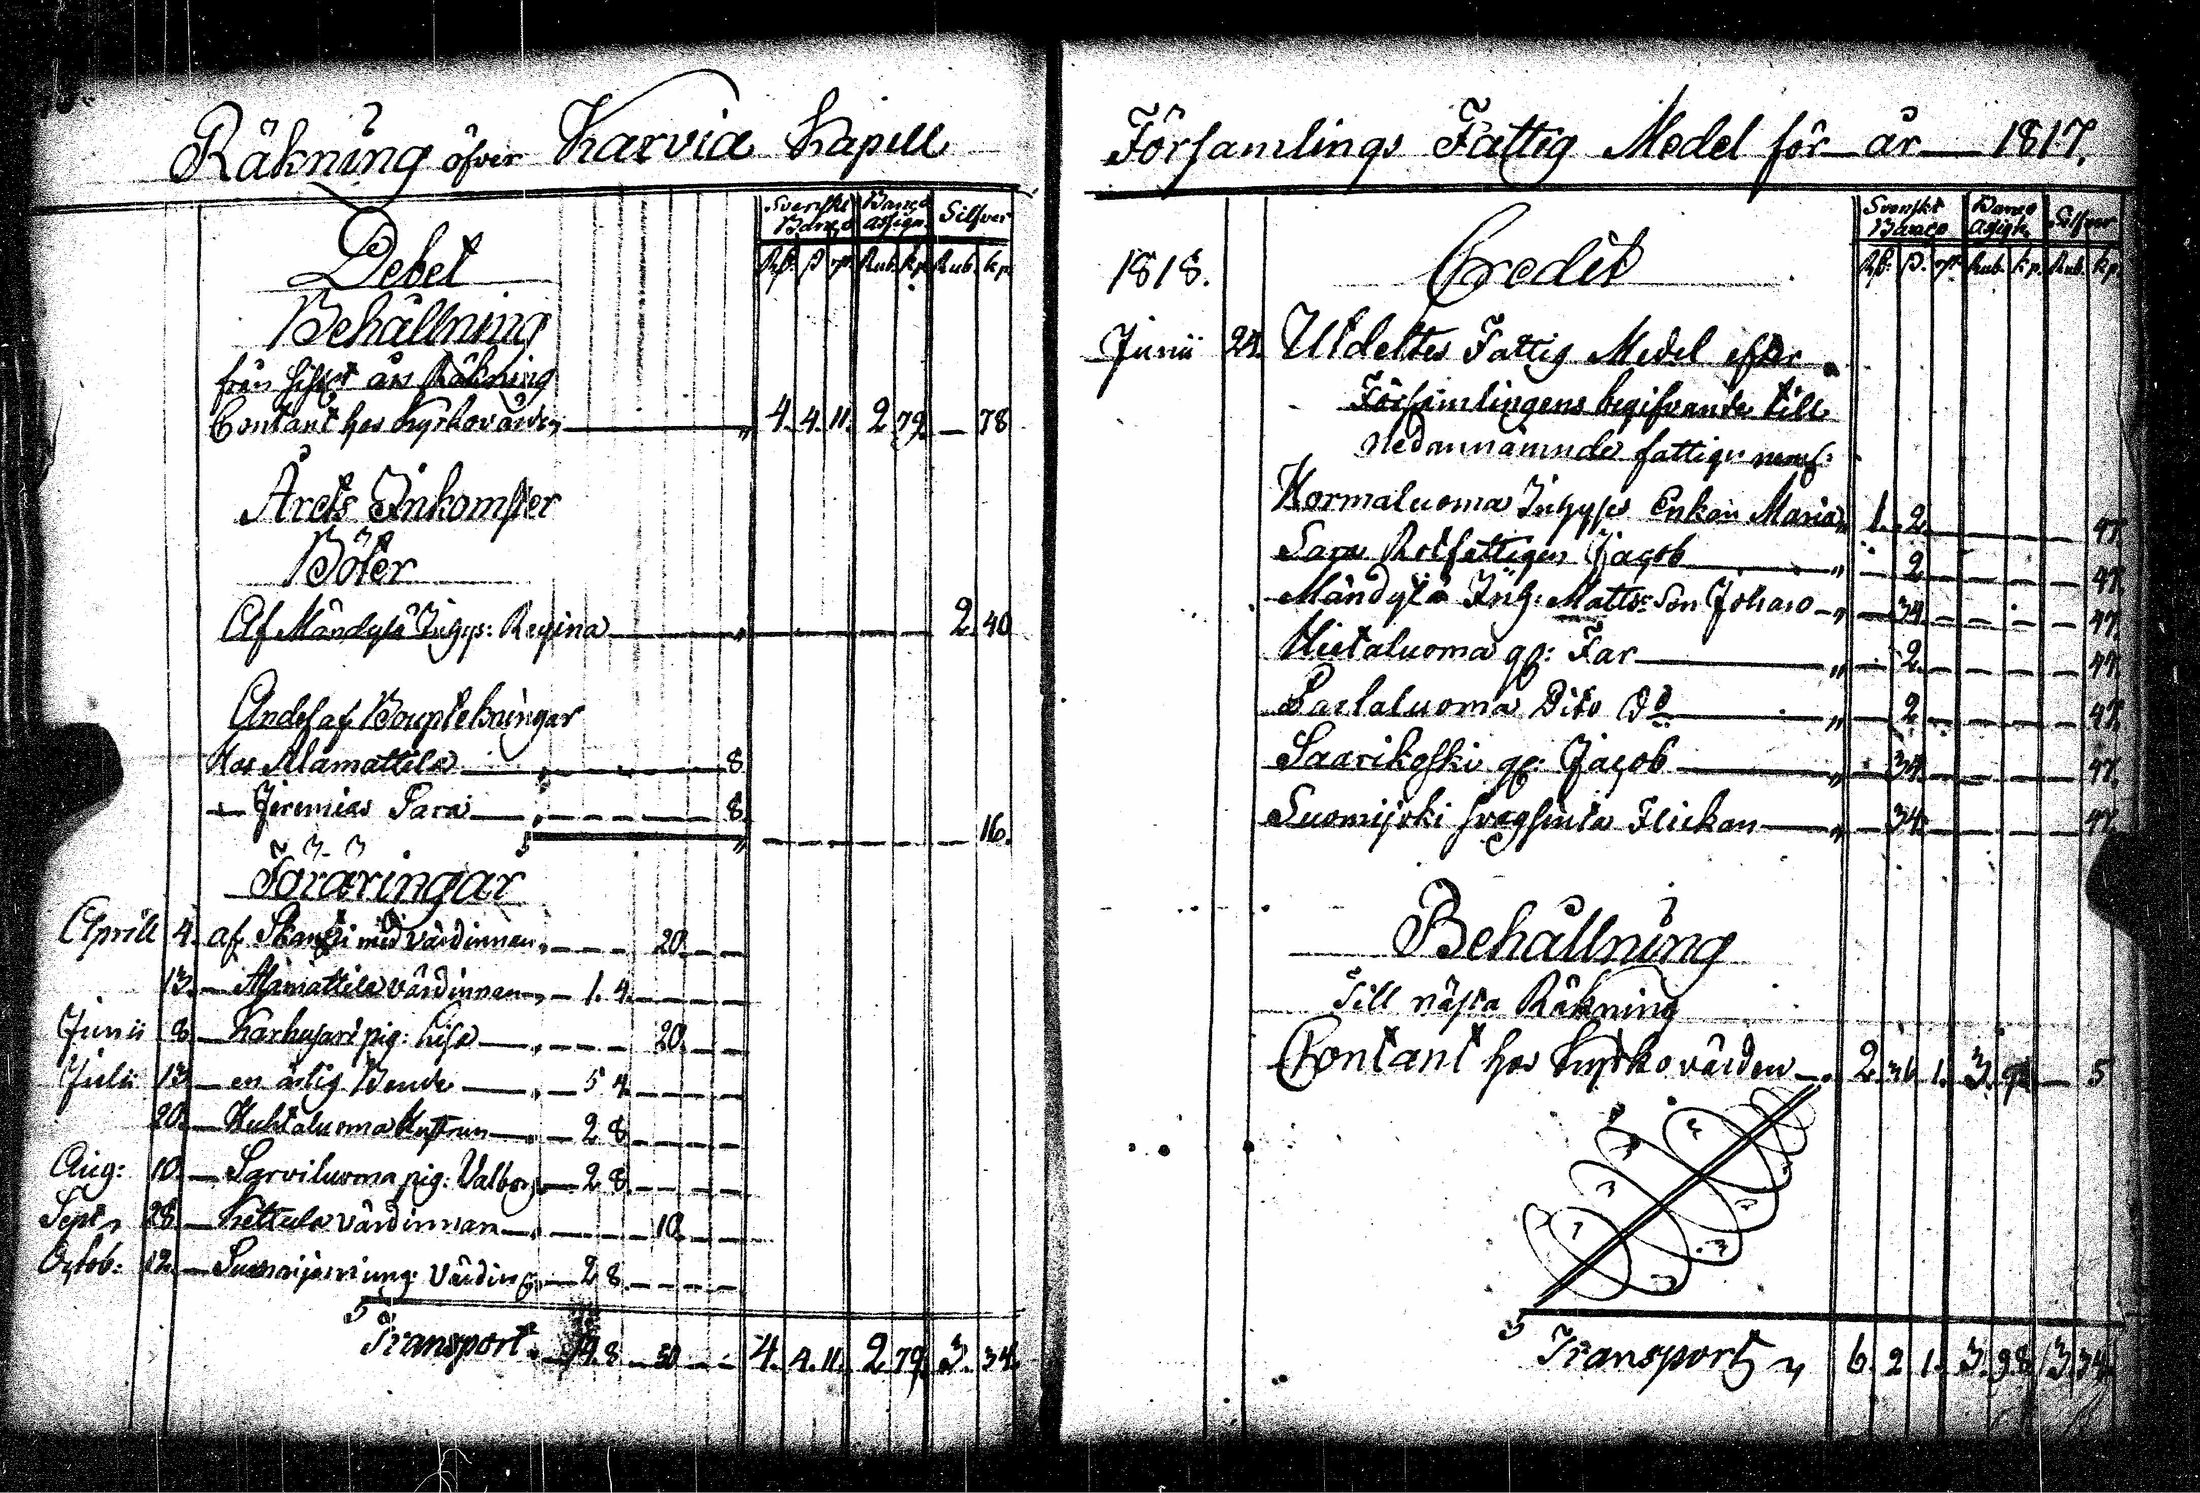 Räkning öfver Karvia Kapell
Svenskt Banco Banco assign. Silfver
Debet
Rd. ß. rst. Rub. kp. Rub. kp.
Behållning
från sistl. års Räkning
Contant hos Kyrkovärden 4. 4. 11. 2 79. — 78
Årets Inkomster
Böter
Af Mändylä Inhys: Regina 2. 40
Andel af Bouptekningar
Hos Alamattila 8.
— Jeremias Sara 8.
16.
Föräringar
Aprill 4. af värdinnan 20.
13. — Alamattila värdinnan 1. 4.
Junii 8. — Karhusari pig: Lisa 20.
Julii 13. — en ärlig 5 4.
20. — Huhtaluoma 2 8.
Aug: 10. — Sarviluoma pig: Valborg 2 8.
Sept. 28. — Kettula värdinnan 10.
Octob: 12. — ung: Värdin 2 8.
Transport 8 — 50 4. 4. 11. 2 79. 3. 34.
Församlings Fattig Medel för år 1817.
Svenskt Banco Banco assign. Silfver
1818. Credit
Rd. ß. rst. Rub. kp. Rub. kp.
Junii 24. Utdeltes Fattig Medel efter
Församlingens begifvande till
Nedannämnde fattige neml:
Kormaluoma Inhyses Enkan Maria 1. 2. 47.
Sara Rotfattigen Jacob 2 47.
Mändylä Inh: Matts Son Johan 34. 47.
Hietaluoma gl: Far 2. 47.
Dito do 2. 47.
Saarikoski gl: Jacob 34. 47.
Suomijoki Flickan 34. 47.
Behållning
Till nästa Räkning
Contant hos Kyrkovärden 2. 36 1. 3. 98 — 5
Transport 6. 2 1. 3. 98. 3 34.